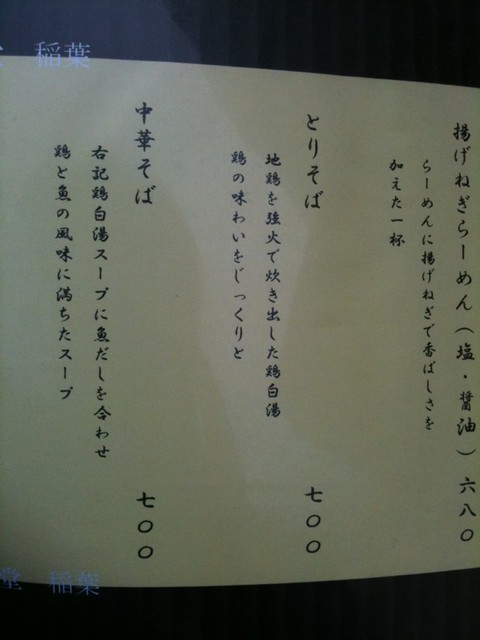 揚げねぎらーめん（塩・醤油）六八〇
らーめんに揚げねぎで香ばしさを
加えた一杯
とりそば 七〇〇
地鶏を強火で炊き出した鶏白湯
鶏の味わいをじっくりと
中華そば 七〇〇
右記鶏白湯スープに魚だしを合わせ
鶏と魚の風味に満ちたスープ
堂 稲葉
堂 稲葉